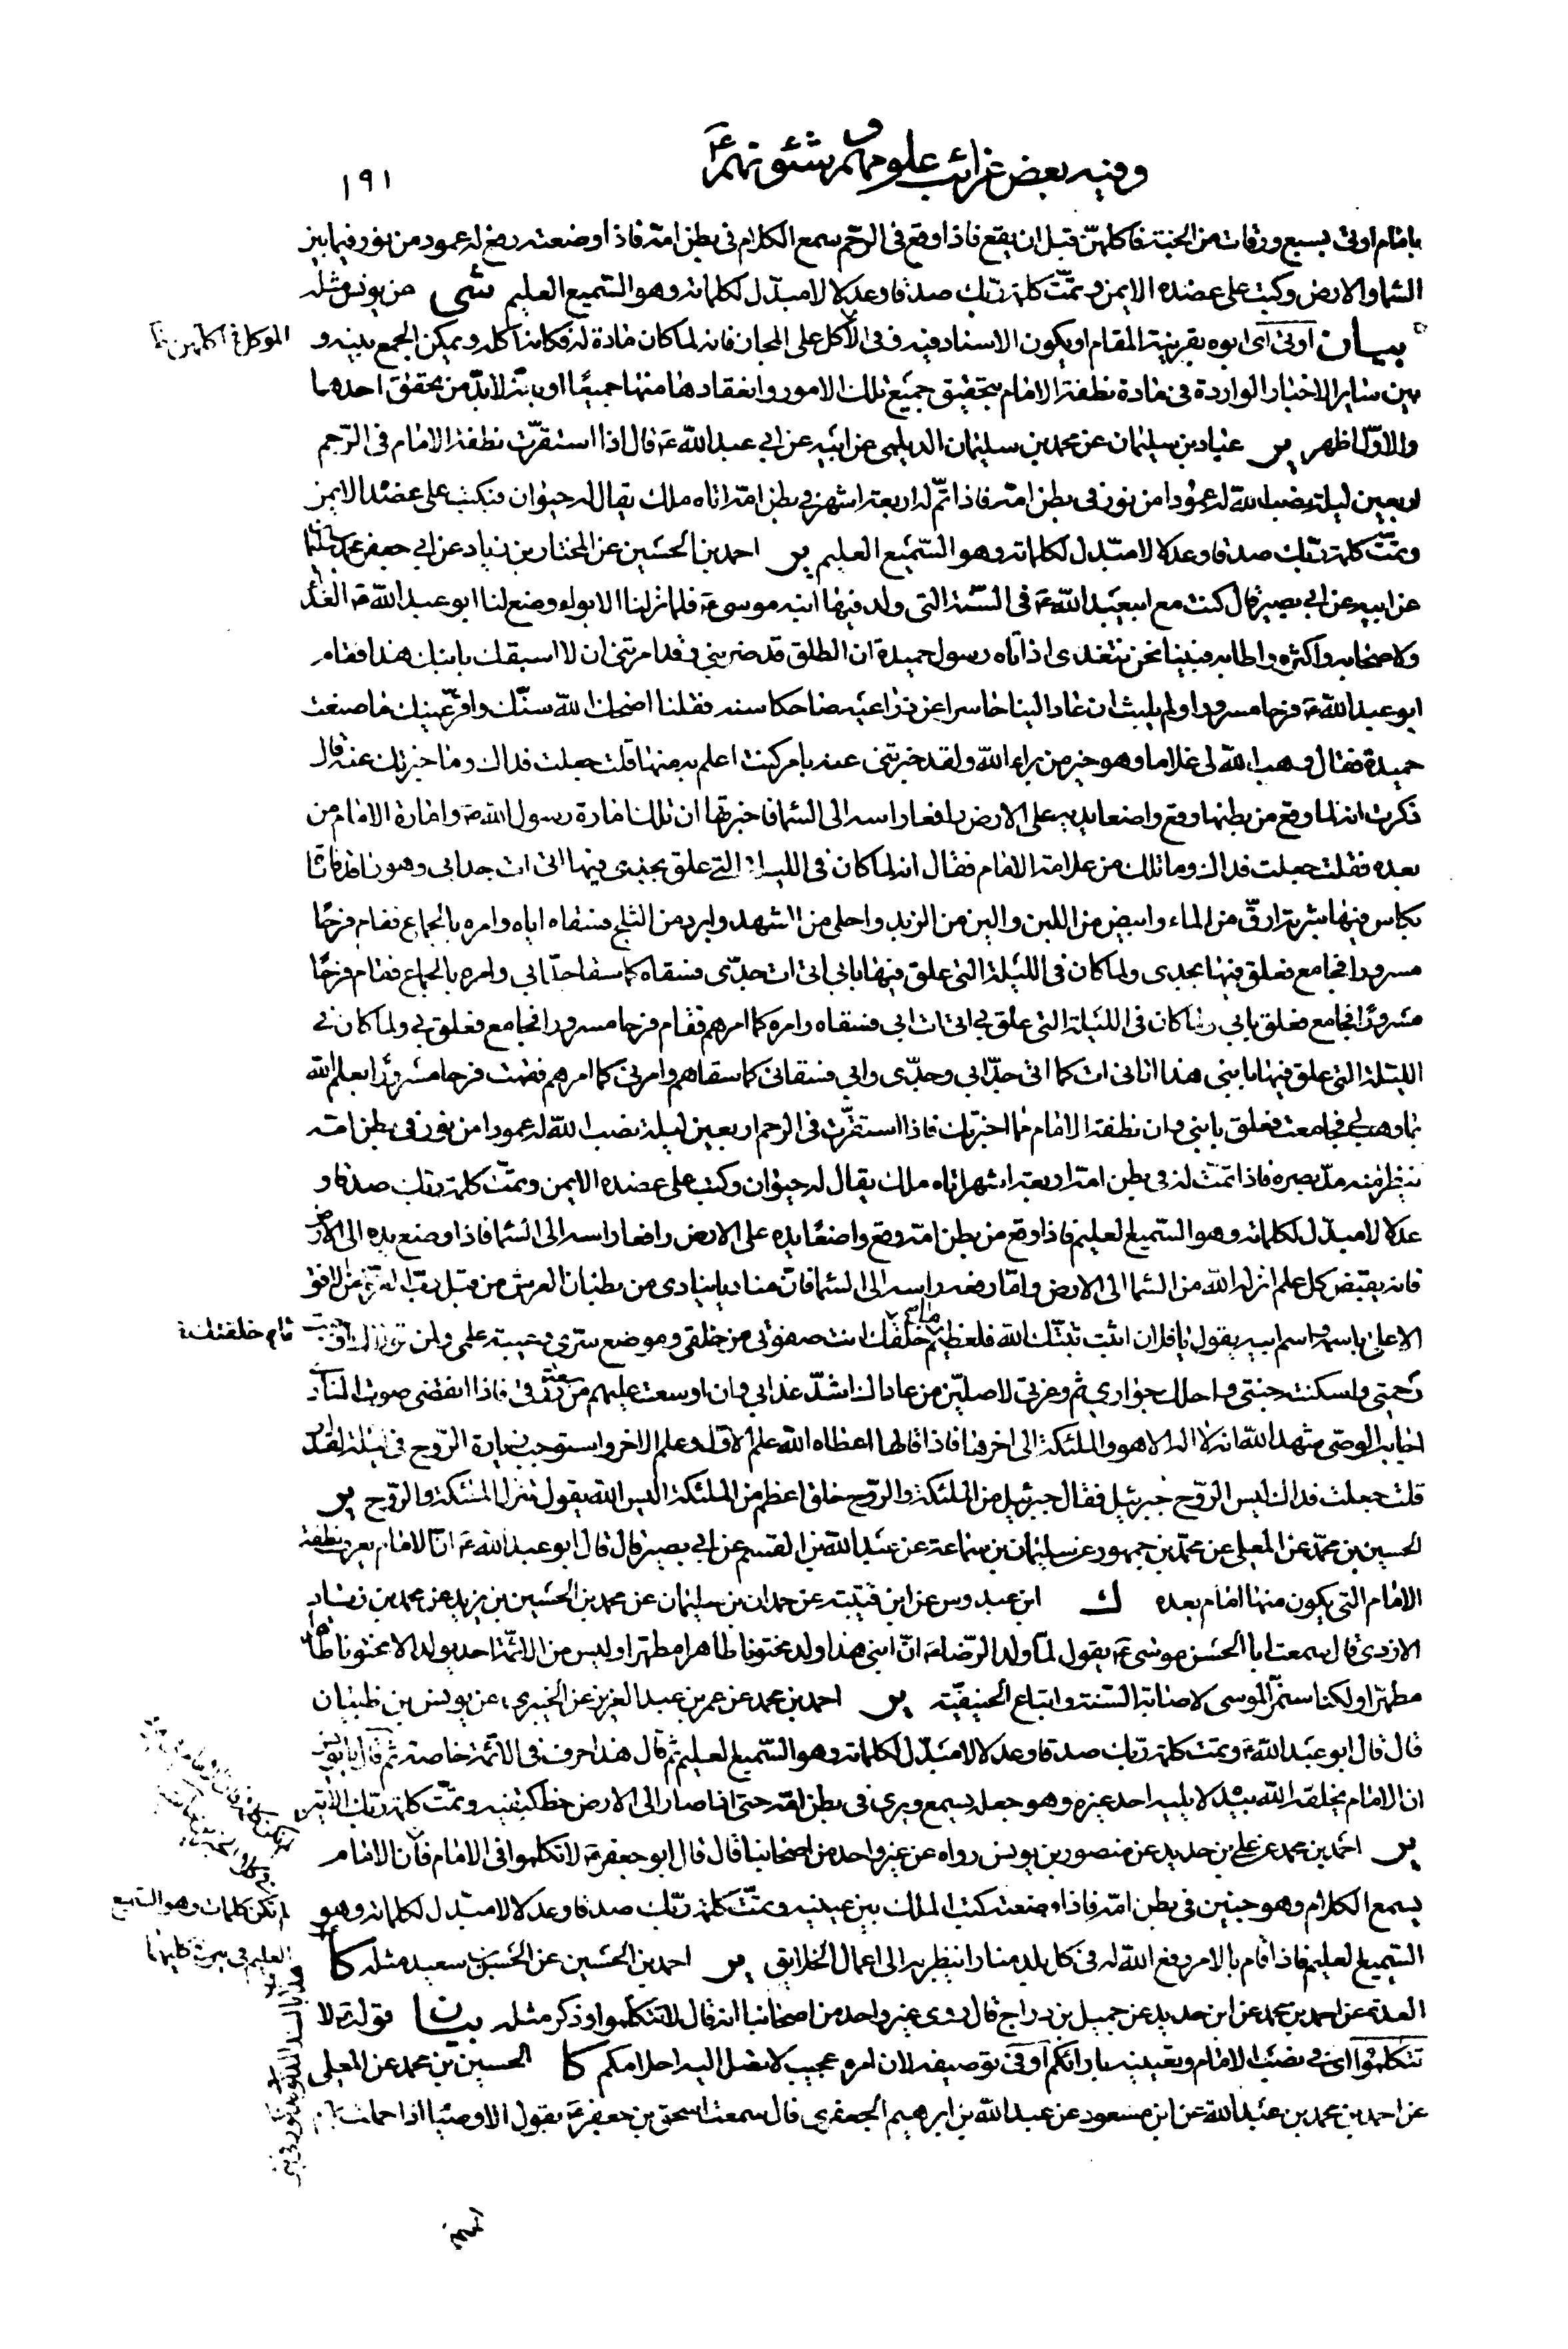 وفيه بعض غرائب علومهم وشئونهم ع
١٩١
بامام اوتى بسبع ورقات من الجنة فاكلهنّ قبل ان يقع فاذا وقع فى الرحم سمع الكلام فى بطن امه فاذا وضعته رفع له عمود من نور فيما بين
السما والارض وكتب على عضده الايمن وتمّت كلمة ربّك صدقا وعدلا لا مبدّل لكلماته وهو السّميع العليم شى عن يونس مثله
بيان اوتى اى ابوه بقرينة المقام او يكون الاسناد فيه فى الاكل على المجاز فانه لما كان مادة له فكانما اكله ويمكن الجمع بينه و
بين ساير الاخبار الواردة فى مادة نطفة الامام بتحقيق جميع تلك الامور وانعقادها منها جميعًا او بانّه لابدّ من تحقق احدهما
والاوّل اظهر ير عباد بن سليمان عن محمد بن سليمان الديلمى عن ابيه عن ابى عبد الله ع قال اذا استقرّت نطفة الامام فى الرّحم
اربعين ليلة نصب الله له عمودا من نور فى بطن امّه فاذا تمّ له اربعة اشهر فى بطن امّه اتاه ملك يقال له حيوان فيكتب على عضده الايمن
وتمّت كلمة ربّك صدقا وعدلا لا مبدّل لكلماته وهو السّميع العليم ير احمد بن الحسين عن المختار بن زياد عن ابى جعفر محمد بن سليمان
عن ابيه عن ابى بصير قال كنت مع ابيعبد الله ع فى السّنة التى ولد فيها ابنه موسى ع فلما نزلنا الابواء وضع لنا ابو عبد الله ع الغداء
ولاصحابه واكثره واطابه فبينا نحن نتغدى اذ اتاه رسول حميدة ان الطلق قد ضربنى وقد امرتنى ان لا اسبقك بابنك هذا فقام
ابو عبد الله ع فرحا مسرورا ولم يلبث ان عاد الينا حاسرا عن ذراعيه ضاحكا سنه فقلنا اضحك الله سنّك واقر عينيك ما صنعت
حميدة فقال وهب الله لى غلاما وهو خير من براء الله ولقد خبرتنى عنه بامر كنت اعلم به منها قلت جعلت فداك وما خبرتك عنه قال
ذكرت انه لما وقع من بطنها وقع واضعا يديه على الارض رافعا راسه الى السما فاخبرتها ان تلك امارة رسول الله ص وامارة الامام من
بعده فقلت جعلت فداك وما تلك من علامة الامام فقال انه لما كان فى الليلة التى علق بجدى فيها اتى ات جد ابى وهو راقد فاتاه
بكاس فيها شربة ارقّ من الماء وابيض من اللبن والين من الزبد واحلى من الشهد وابرد من الثلج فسقاه اياه وامره بالجماع فقام فرحًا
مسرورا فجامع فعلق فيها بجدى ولما كان فى اللّيلة التى علق فيها بابى اتى ات جدّى فسقاه كما سقا جدّ ابى وامره بالجماع فقام فرحًا
مسرورًا فجامع فعلق بابى ولما كان فى اللّيلة التى علق بى اتى ات ابى فسقاه وامره كما امرهم فقام فرحا مسرورا فجامع فعلق بى ولما كان فى
الليلة التى علق فيها بابنى هذا اتانى ات كما اتى جدّ ابى وجدّى وابى فسقانى كما سقاهم وامرنى كما امرهم فقمت فرحا مسرورًا بعلم الله
بما وهب لى فجامعت فعلق بابنى وان نطفة الامام مما اخبرتك فاذا استقرّت فى الرحم اربعين ليلة نصب الله له عمودا من نور فى بطن امه
ينظر منه مدّ بصره فاذا تمّت له فى بطن امه اربعة اشهر اتاه ملك يقال له حيوان وكتب على عضده الايمن وتمّت كلمة ربك صدقا و
عدلا لا مبدّل لكلماته وهو السّميع العليم فاذا وقع من بطن امه وقع واضعًا يده على الارض رافعا راسه الى السّما فاذا وضع يده الى الارض
فانه يقبض كل علم انزله الله من السّما الى الارض وامّا رفعه راسه الى السّما فانّ مناديا ينادى من بطنان العرش من قبل ربّ العزّة من الافق
الاعلى باسمه واسم ابيه يقول يا فلان اثبت ثبّتك الله فلعظيم ما خلقتك انت صفوتى من خلقى وموضع سرّى وعيبة علمى ولمن تولاك اوجبت
رحمتى واسكنت جنتى واحللت جوارى ثم وعزتى لاصلينّ من عاداك اشدّ عذابى وان اوسعت عليهم من سعة رزقى فاذا انقضى صوت المنادى
اجابه الوصى شهد الله انه لا اله الا هو والملئكة الى اخرها فاذا قالها اعطاه الله علم الاوّل وعلم الاخر واستوجب زيادة الرّوح فى ليلة القدر
قلت جعلت فداك اليس الروّح جبرئيل فقال جبرئيل من الملئكة والروّح خلق اعظم من الملئكة اليس الله يقول تنزل الملئكة والروّح ير
الحسين بن محمّد عن المعلى عن محمّد بن جمهور عن سليمان بن سماعة عن عبد الله بن القسم عن ابى بصير قال قال ابو عبد الله ع انّ الامام يعرف نطفة
الامام التى يكون منها امام بعده ك ابن عبدوس عن ابن قتيبة عن حمدان بن سليمان عن محمد بن الحسين بن يزيد عن محمد بن زياد
الازدى قال سمعت ابا الحسن موسى ع يقول لمّا ولد الرّضا ع انّ ابنى هذا ولد مختونا طاهرا مطهرا وليس من الائمّة احد يولد الا مختونا طاهرا
مطهّرا ولكنا سنمرّ الموسى لاصابة السّنة واتباع الحنيفيّة ير احمد بن محمد عن عمر بن عبد العزيز عن الخيبرى عن يونس بن ظبيان
قال قال ابو عبد الله ع وتمت كلمة ربك صدقا وعدلا لا مبدّل لكلماته وهو السّميع العليم ثم قال هذا حرف فى الائمّة خاصة ثم قال يا يونس
ان الامام يخلقه الله بيده لا يليه احد غيره وهو جعله يسمع ويرى فى بطن امّه حتى اذا صار الى الارض خط بين كتفيه وتمّت كلمة ربّك الاية
ير احمد بن محمد عن على بن حديد عن منصور بن يونس رواه عن غير واحد من اصحابنا قال قال ابو جعفر ع لا تكلموا فى الامام فانّ الامام
يسمع الكلام وهو جنين فى بطن امّه فاذا وضعته كتب الملك بين عينيه وتمّت كلمة ربّك صدقا وعدلا لا مبدّل لكلماته وهو
السّميع العليم فاذا قام بالامر رفع الله له فى كل بلد منارا ينظر به الى اعمال الخلايق ير احمد بن الحسين عن الحسين بن سعيد مثله كا
العدة عن احمد بن محمد عن ابن حديد عن جميل بن دراج قال روى غير واحد من اصحابنا انه قال لا تتكلموا وذكر مثله بيان قوله ع لا
تتكلموا اى فى نصب الامام وتعيينه بارائكم او فى توصيفه لان امره عجيب لا تصل اليه احلامكم كا الحسين بن محمد عن المعلى
عن احمد بن محمد بن عبد الله عن ابن مسعود عن عبد الله بن ابرهيم الجعفرى قال سمعت اسحق بن جعفر ع يقول الاوصيا اذا حملت
تمام خلقتك
لم تكن كلمات وهو السّميع